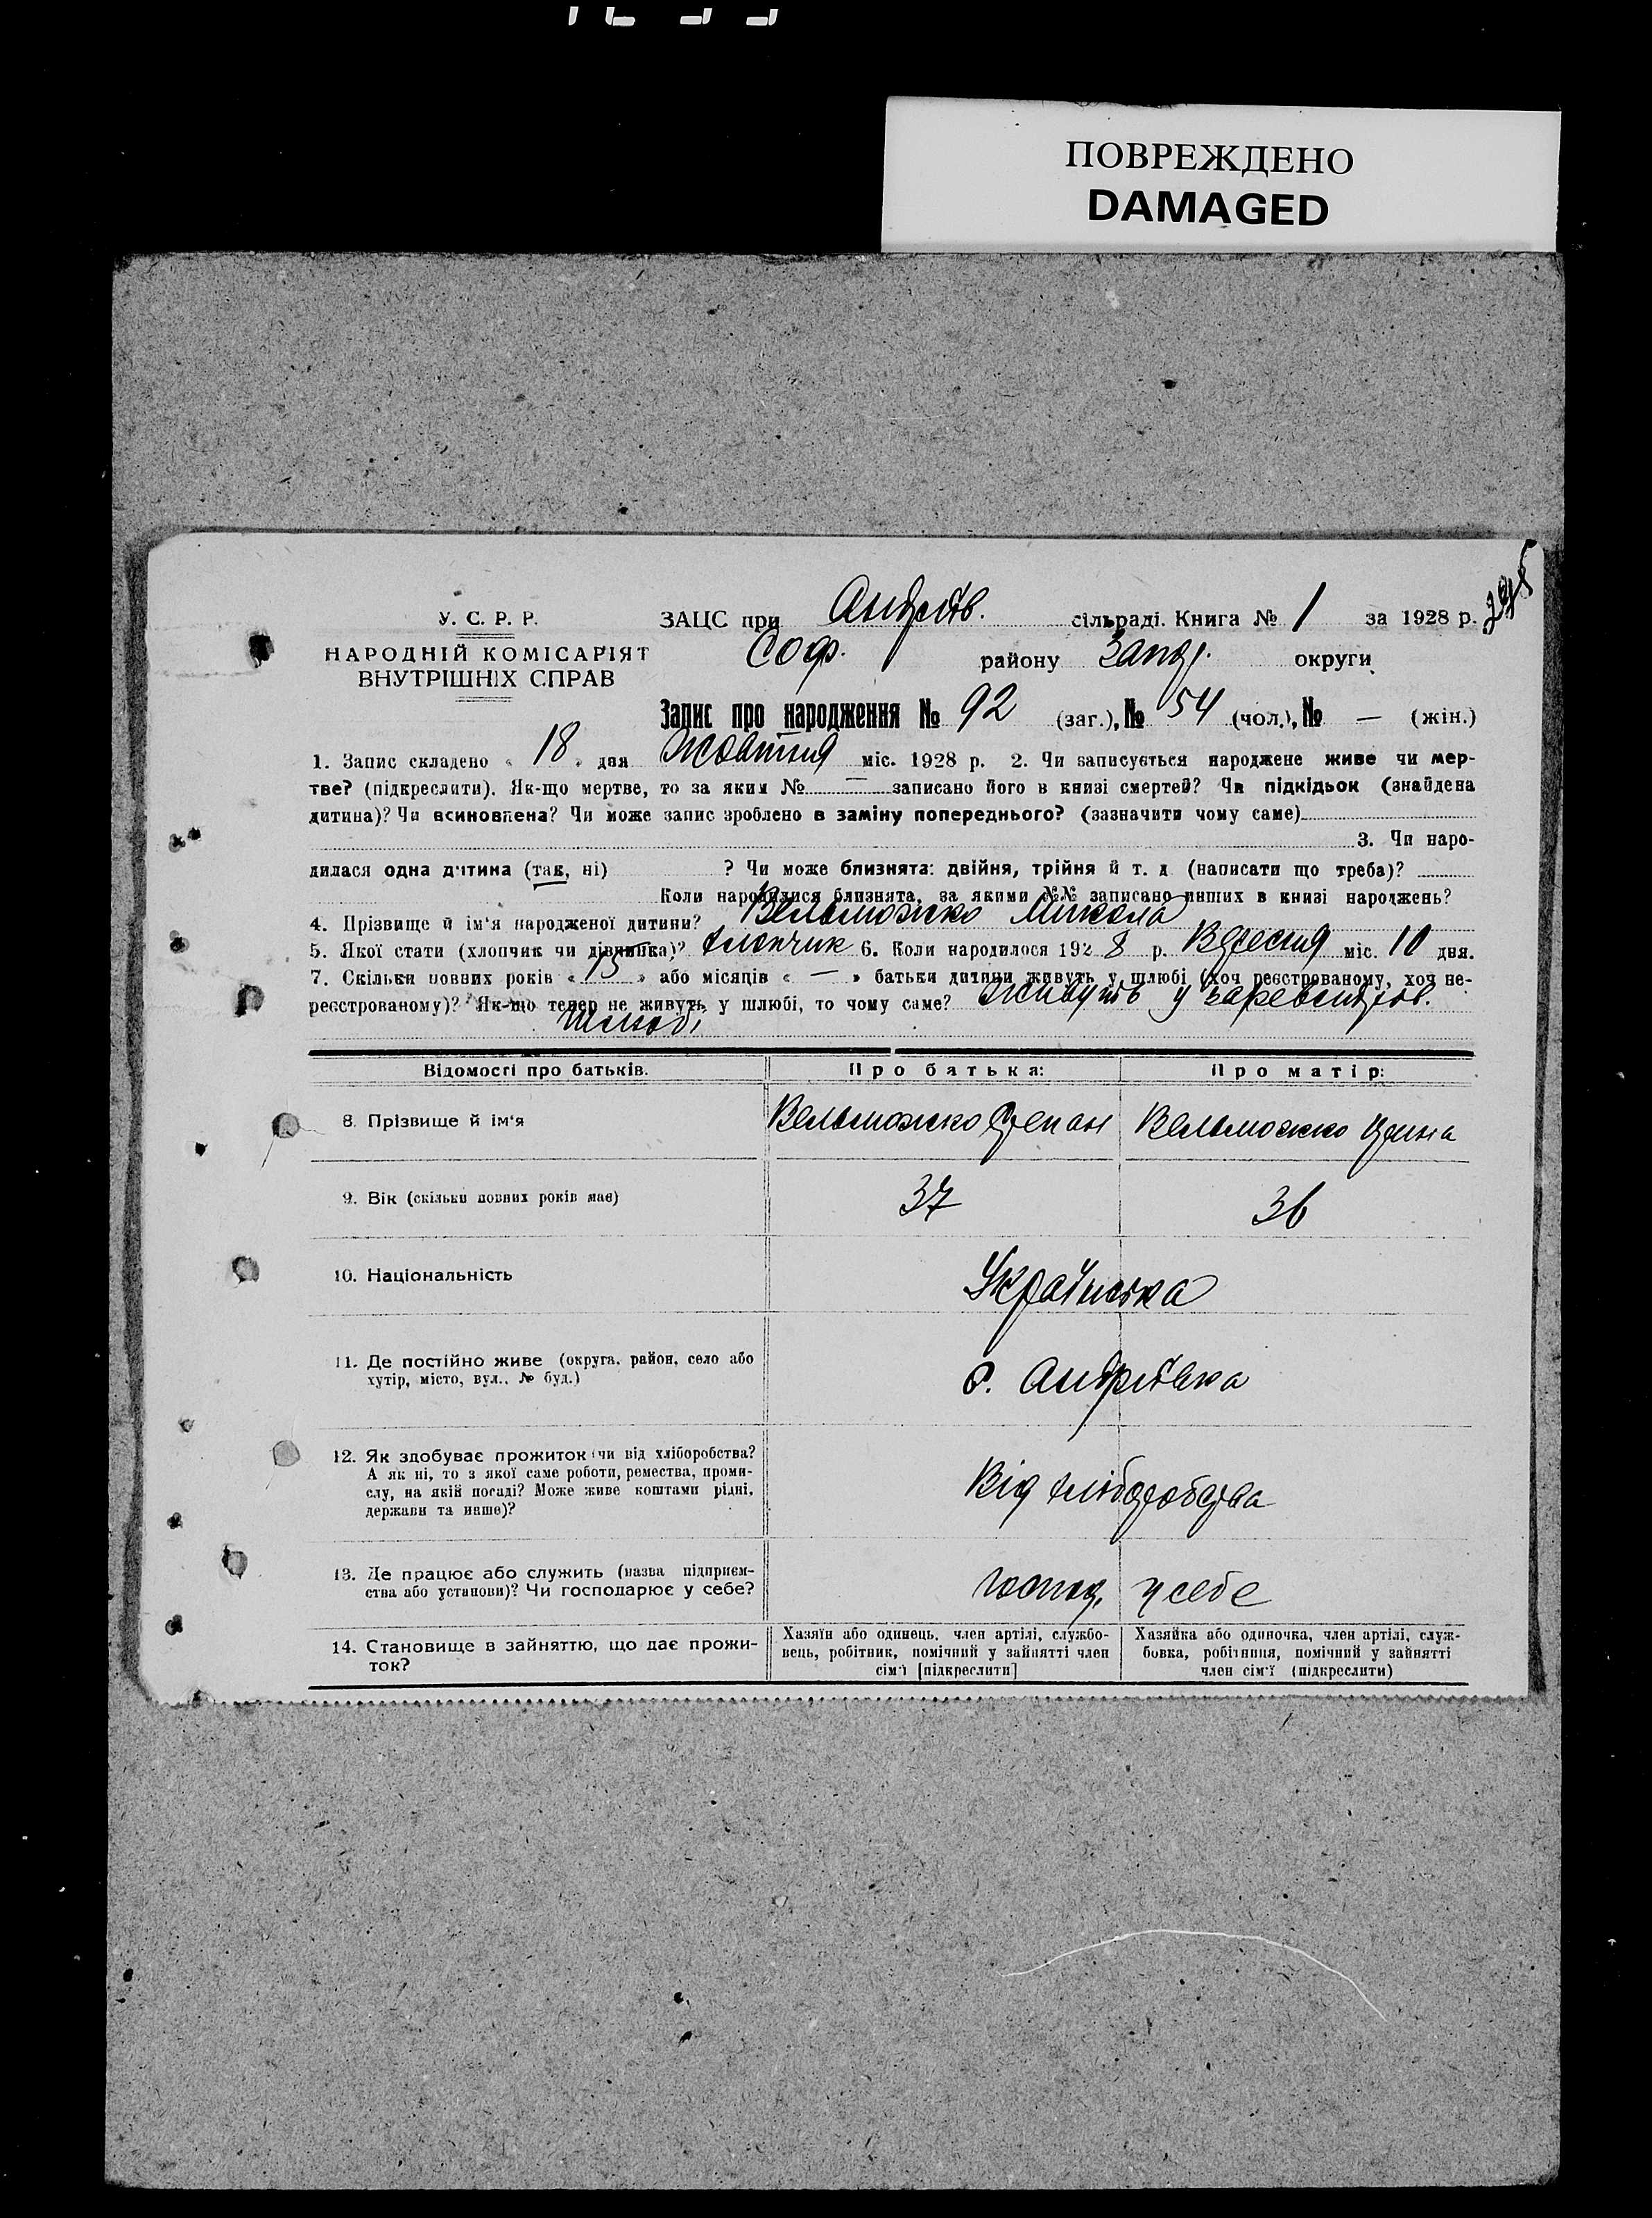 ПОВРЕЖДЕНО
DAMAGED
У. С. Р. Р.
НАРОДНІЙ КОМІСАРІЯТ
ВНУТРІШНІХ СПРАВ
ЗАЦС при Андріїв. сільраді. Книга № 1 за 1928 р.
Соф. району Запор. округи
Запис про народження № 92 (заг.), № 54 (чол.), № — (жін.)
1. Запис складено « 18 » дня Жовтня міс. 1928 р. 2. Чи записується народжене живе чи мер-
тве? (підкреслити). Як-що мертве, то за яким № — записано його в книзі смертей? Чи підкідьок (знайдена
дитина)? Чи всиновлена? Чи може запис зроблено в заміну попереднього? (зазначити чому саме)
3. Чи наро-
дилася одна дитина (так, ні) ? Чи може близнята: двійня, трійня й т. д (написати що треба)?
Коли народилися близнята, за якими №№ записано инших в книзі народжень?
4. Прізвище й ім'я народженої дитини? Вельможко Микола
5. Якої стати (хлопчик чи дівчинка)? хлопчик 6. Коли народилося 192 8 р. Вересня міс. 10 дня.
7. Скільки повних років « 15 » або місяців « — » батьки дитини живуть у шлюбі (хоч реєстрованому, хоч не-
реєстрованому)? Як-що тепер не живуть у шлюбі, то чому саме? Живуть у
шлюбі
Відомості про батьків.
Про батька:
Про матір:
8. Прізвище й ім'я
Вельможко Степан
Вельможко Ірина
9. Вік (скільки повних років має)
37
36
10. Національність
Українська
11. Де постійно живе (округа, район, село або
хутір, місто, вул., № буд.)
с. Андріївка
12. Як здобуває прожиток (чи від хліборобства?
А як ні, то з якої саме роботи, ремества, проми-
слу, на якій посаді? Може живе коштами рідні,
держави та инше)?
Від хліборобства
13. Де працює або служить (назва підприєм-
ства або установи)? Чи господарює у себе?
господ. у себе
14. Становище в зайняттю, що дає прожи-
ток?
Хазяїн або одинець, член артілі, службо-
вець, робітник, помічний у зайнятті член
сім'ї [підкреслити]
Хазяйка або одиночка, член артілі, служ-
бовка, робітниця, помічний у зайнятті
член сім'ї (підкреслити)